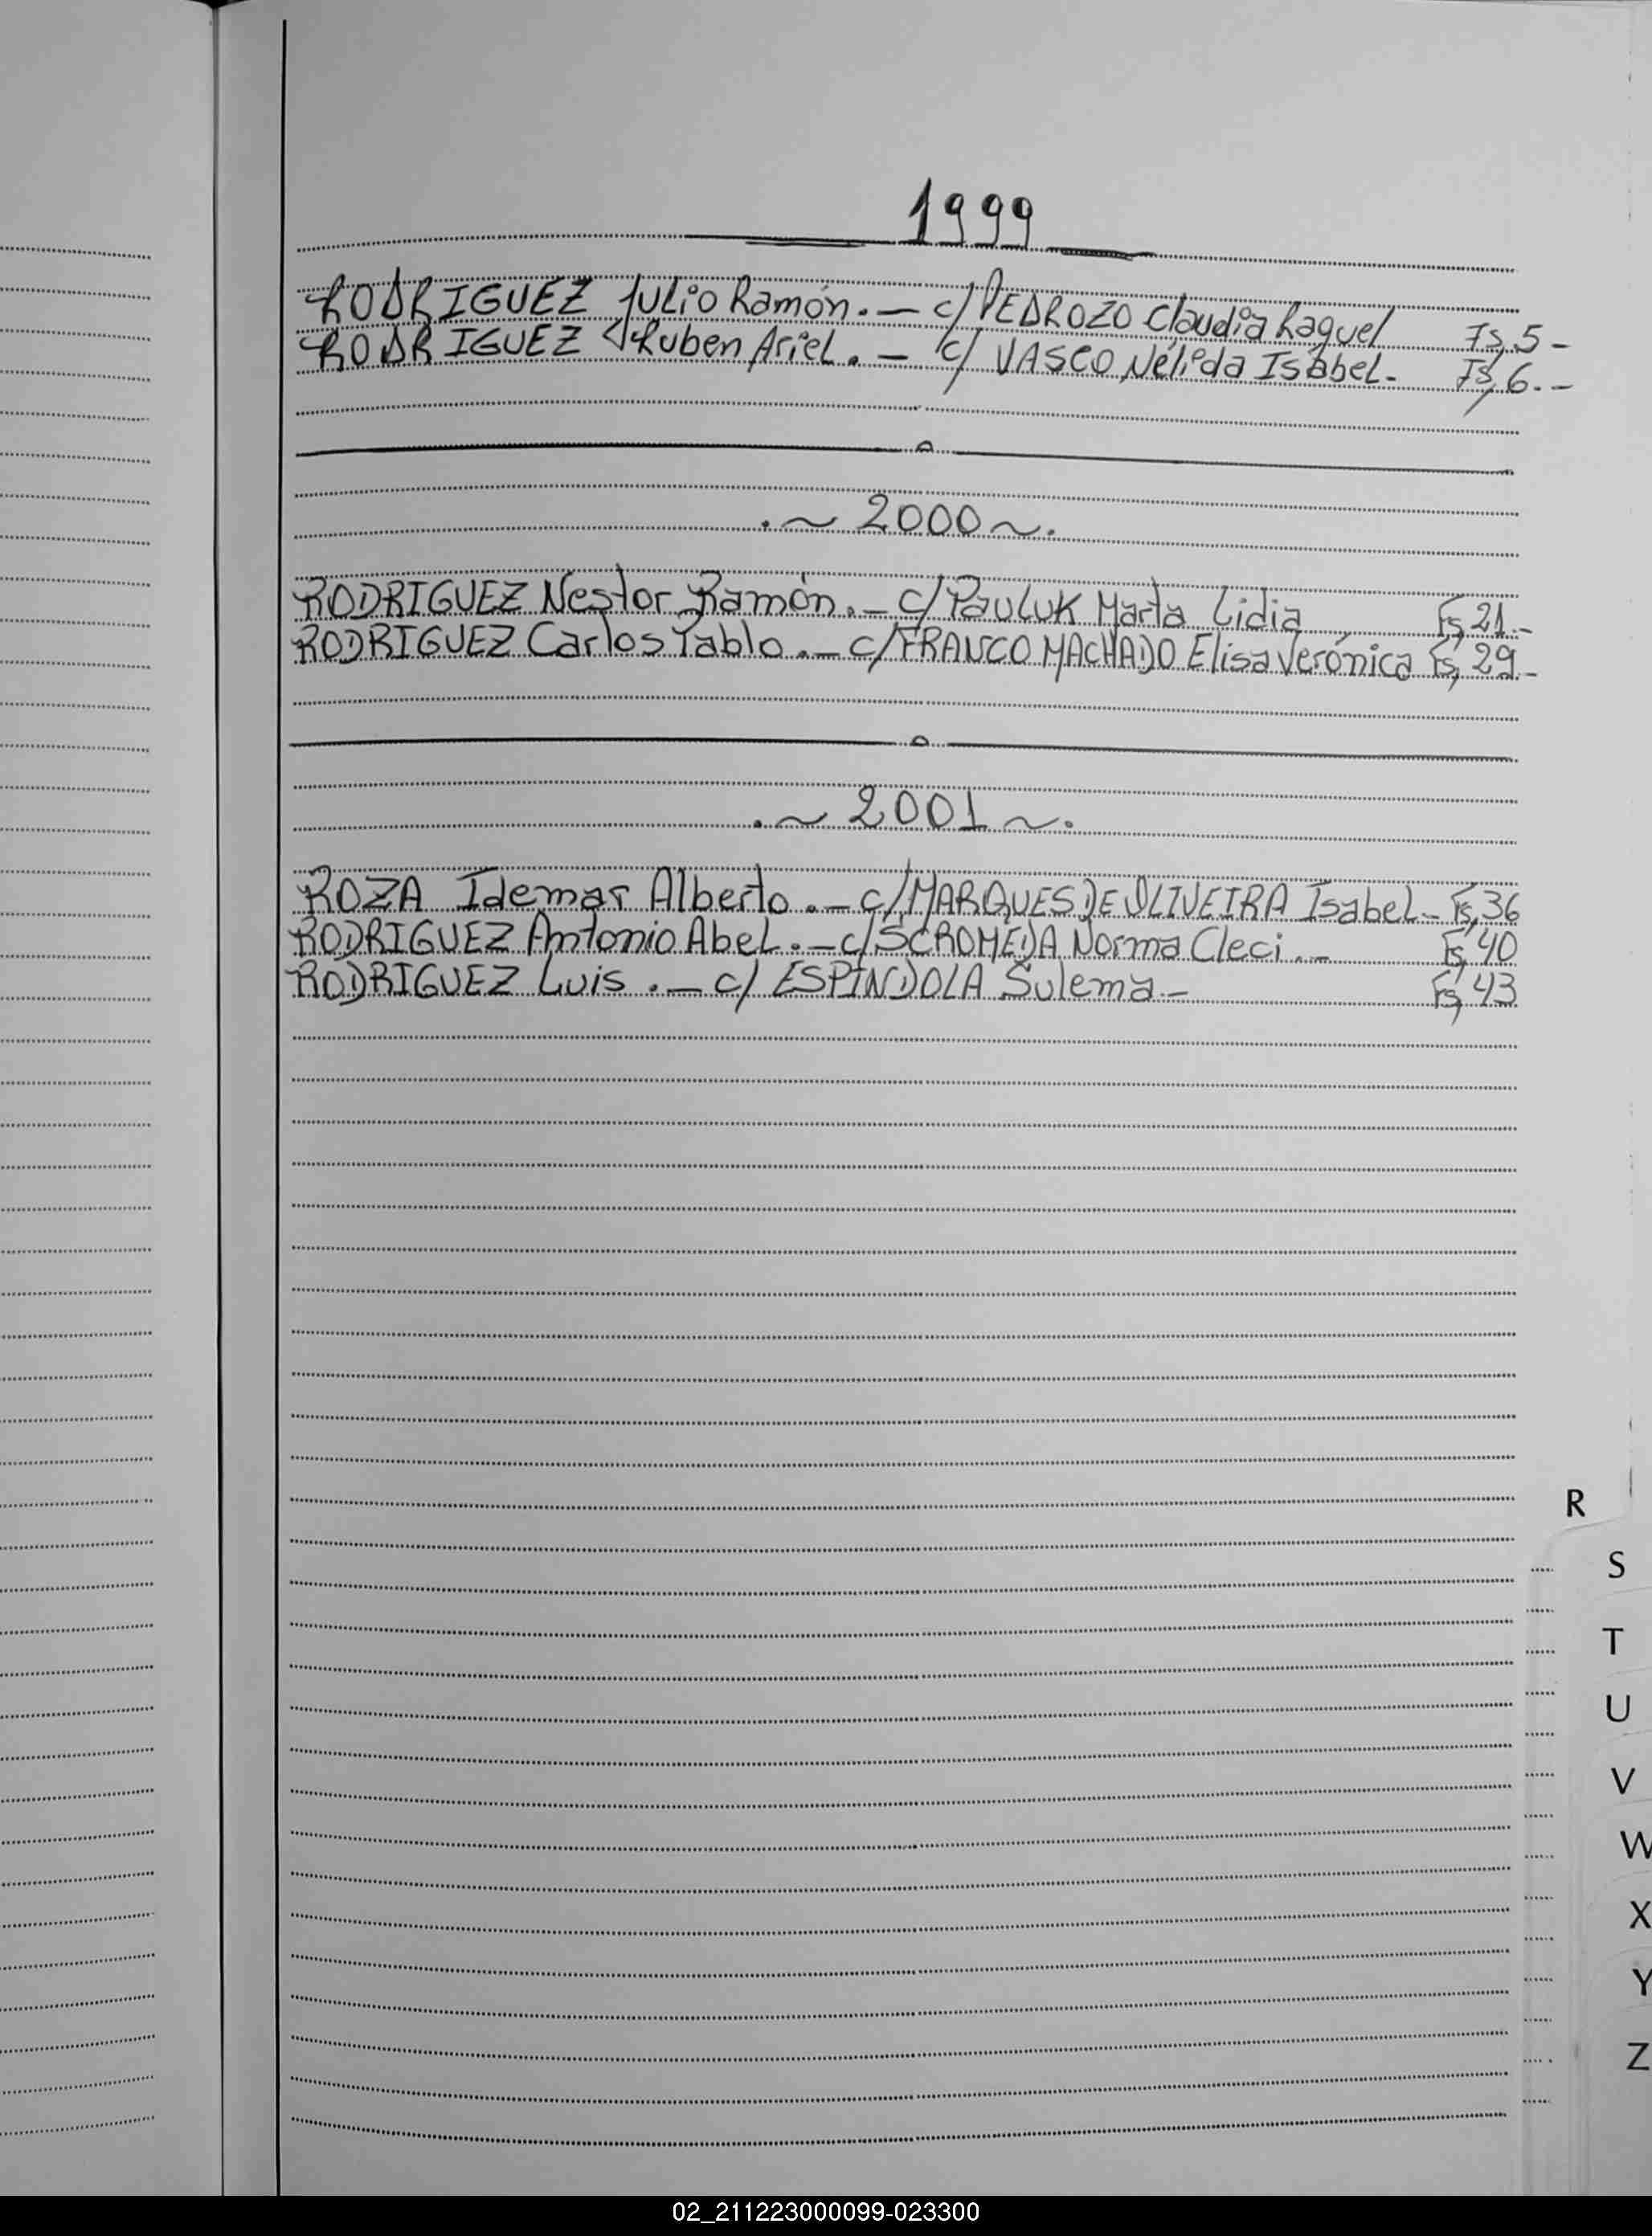 1999
RODRIGUEZ Julio Ramón.— c/ PEDROZO Claudia Raquel Fs, 5-
RODRIGUEZ Ruben Ariel.— c/ VASCO Nélida Isabel.- Fs, 6.-
.~ 2000 ~.
RODRIGUEZ Nestor Ramón.— c/ Pauluk Marta Lidia Fs, 21.-
RODRIGUEZ Carlos Pablo.— c/ FRANCO MACHADO Elisa Verónica Fs, 29.-
.~ 2001 ~.
ROZA Idemar Alberto.— c/ MARQUES DE OLIVEIRA Isabel- Fs, 36
RODRIGUEZ Antonio Abel.— c/ Norma Cleci.- Fs, 40
RODRIGUEZ Luis.— c/ ESPINDOLA Sulema- Fs, 43
R
S
T
U
V
W
X
Y
Z
02_211223000099-023300